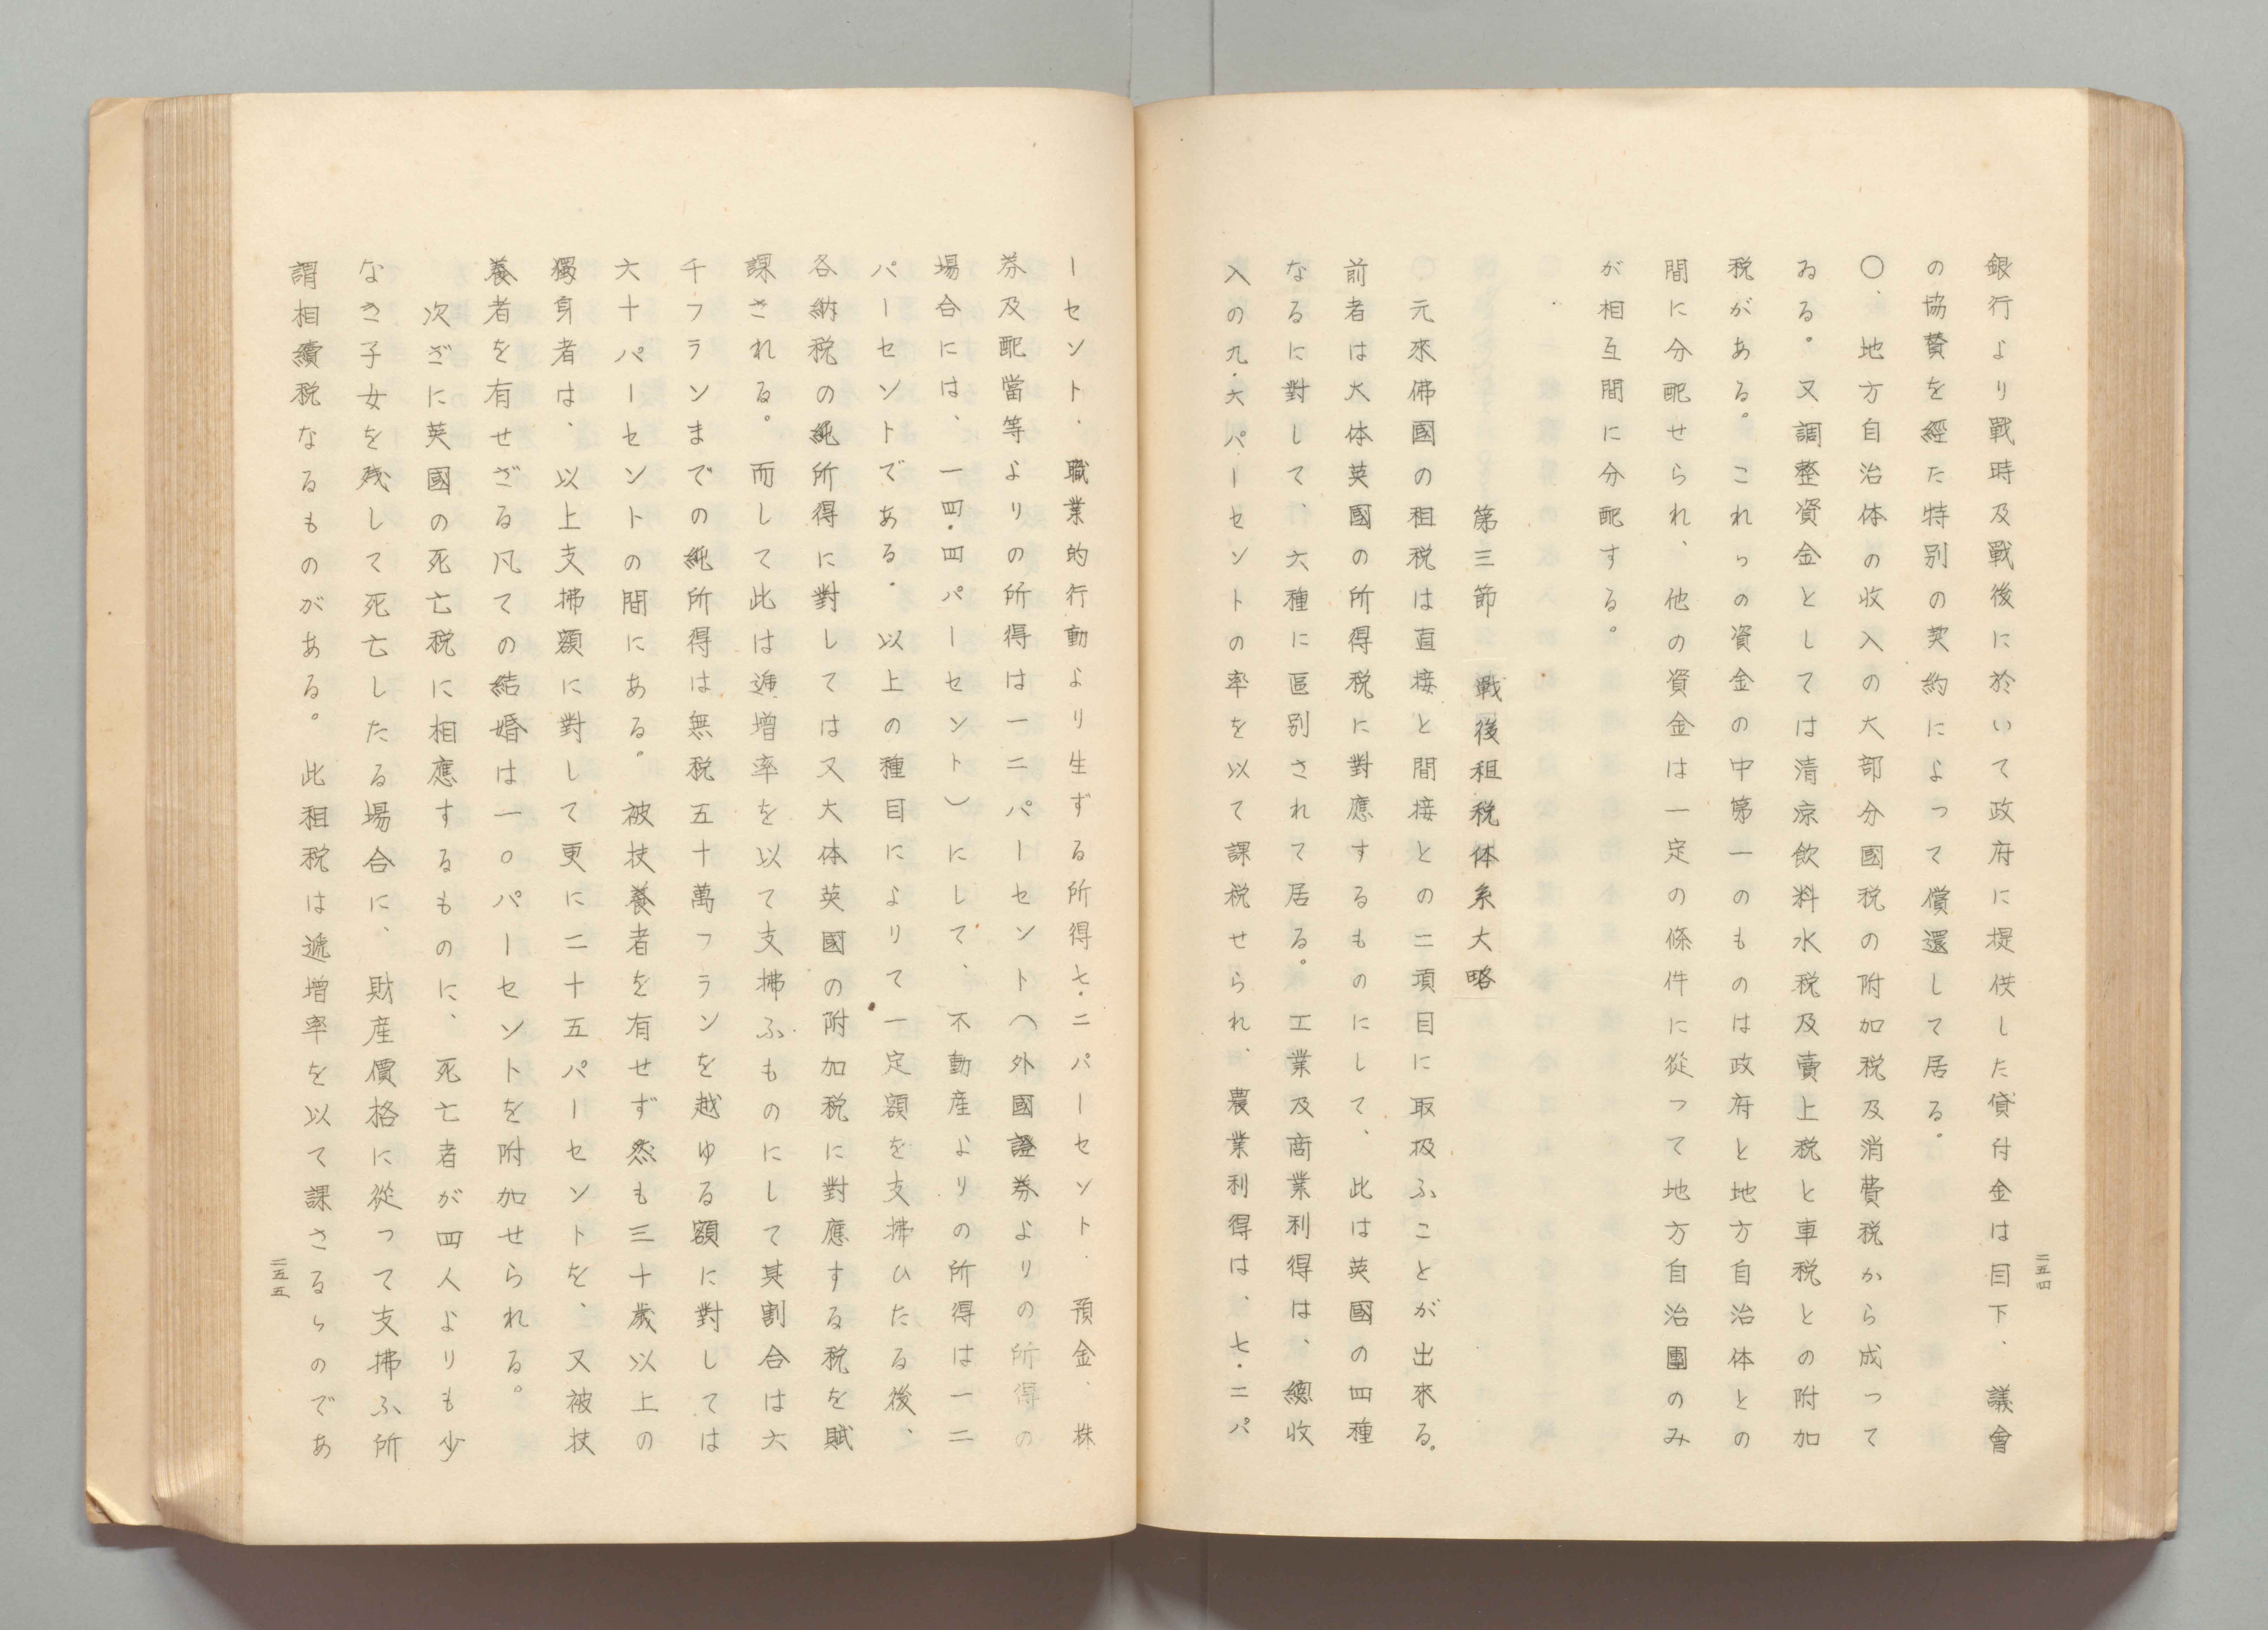 二五四
銀行より戰時及戰後に於いて政府に提供した貸付金は目下、議會
の協賛を經た特別の契約によって償還して居る。
〇、地方自治体の收入の大部分國税の附加税及消費税から成って
ゐる。又調整資金としては清涼飲料水税及賣上税と車税との附加
税がある。これらの資金の中第一のものは政府と地方自治体との
間に分配せられ、他の資金は一定の條件に從って地方自治團のみ
が相互間に分配する。
第三節 戰後租税体系大略
〇元來佛國の租税は直接と間接との二項目に取扱ふことが出來る。
前者は大体英國の所得税に對應するものにして、此は英國の四種
なるに對して、六種に區別されて居る。工業及商業利得は、總收
入の九・六パーセントの率を以て課税せられ、農業利得は、七・二パ
ーセント、職業的行動より生ずる所得七・二パーセント、預金、株
券及配當等よりの所得は一二パーセント（外國證券よりの所得の
場合には、一四・四パーセント）にして、不動産よりの所得は一二
パーセントである。以上の種目によりて一定額を支拂ひたる後、
各納税の純所得に對しては又大体英國の附加税に對應する税を賦
課される。而して此は逓増率を以て支拂ふものにして其割合は六
千フランまでの純所得は無税五十萬フランを越ゆる額に對しては
六十パーセントの間にある。被扶養者を有せず然も三十歳以上の
獨身者は、以上支拂額に對して更に二十五パーセントを、又被扶
養者を有せざる凡ての結婚は一〇パーセントを附加せられる。
次ぎに英國の死亡税に相應するものに、死亡者が四人よりも少
なき子女を残して死亡したる場合に、財産價格に從って支拂ふ所
謂相續税なるものがある。此租税は遞増率を以て課さるゝのであ
二五五